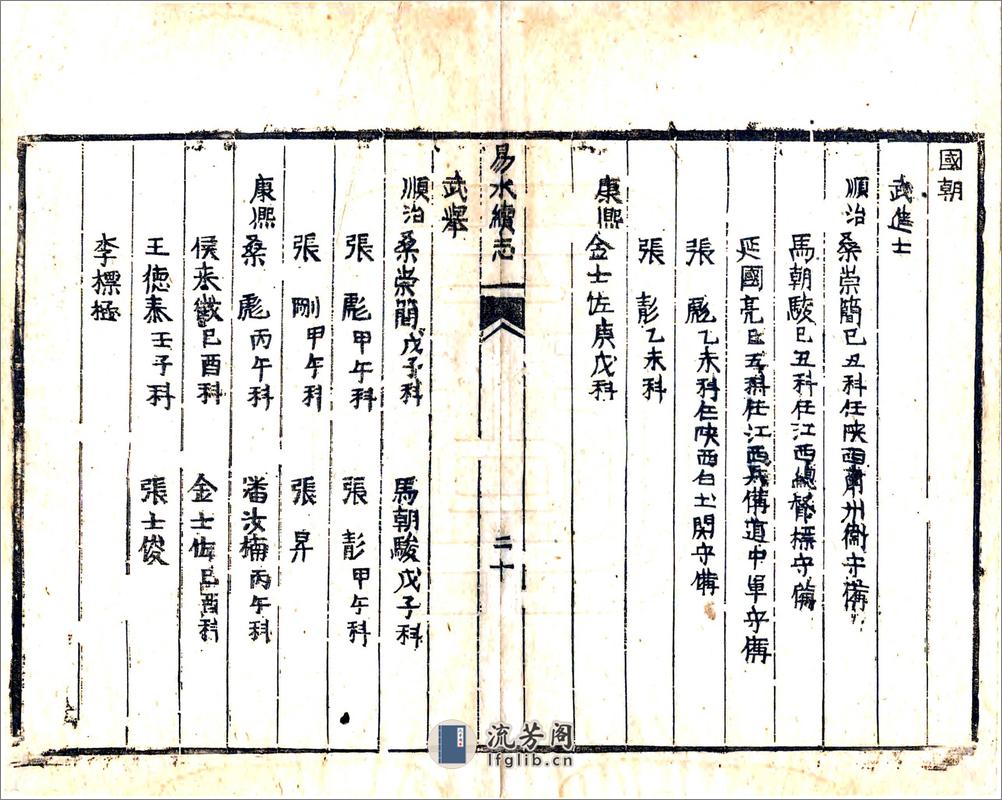 國朝
武進士
順治 桑崇簡己丑科任陝西肅州衛守備
馬朝駿己丑科任江西總督標守備
延國亮己丑科任江西兵備道中軍守備
張 彪乙未科任陝西白土関守備
張 彭乙未科
康熈
金士佐庚戊科
易水續志
二十
武舉
順治 桑崇簡戊子科 馬朝駿戊子科
張 彪甲午科 張 彭甲午科
張 剛甲午科 張 昇
康熈
桑 彪丙午科 潘汝楠丙午科
侯来徵己酉科 金士佐己酉科
王徳泰壬子科 張士俊
李標極
流芳阁
lfglib.cn